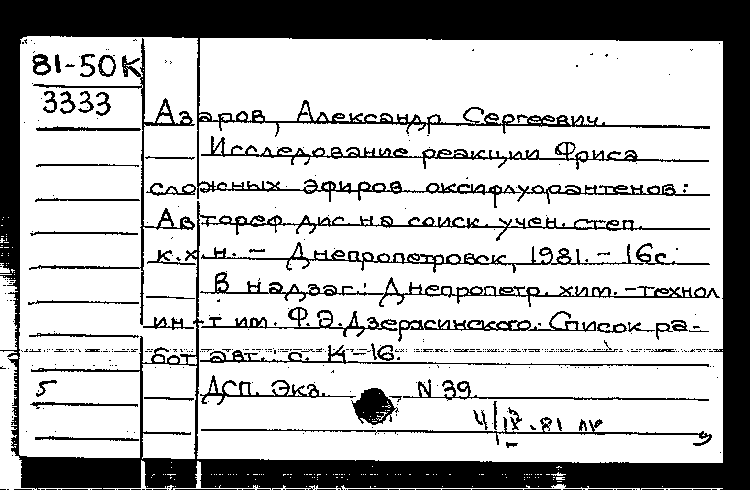 81-50К
3333
Азаров, Александр Сергеевич.
Исследование реакции Фриса
сложных эфиров оксифлуорантенов:
Автореф. дис. на соиск. учен. степ.
к.х.н. – Днепропетровск, 1981. – 16с.
В надзаг.: Днепропетр. хим.-технол
ин-т им. Ф.Э.Дзержинского. Список ра-
бот авт.: с. 14-16.
5
ДСП. Экз. N 39